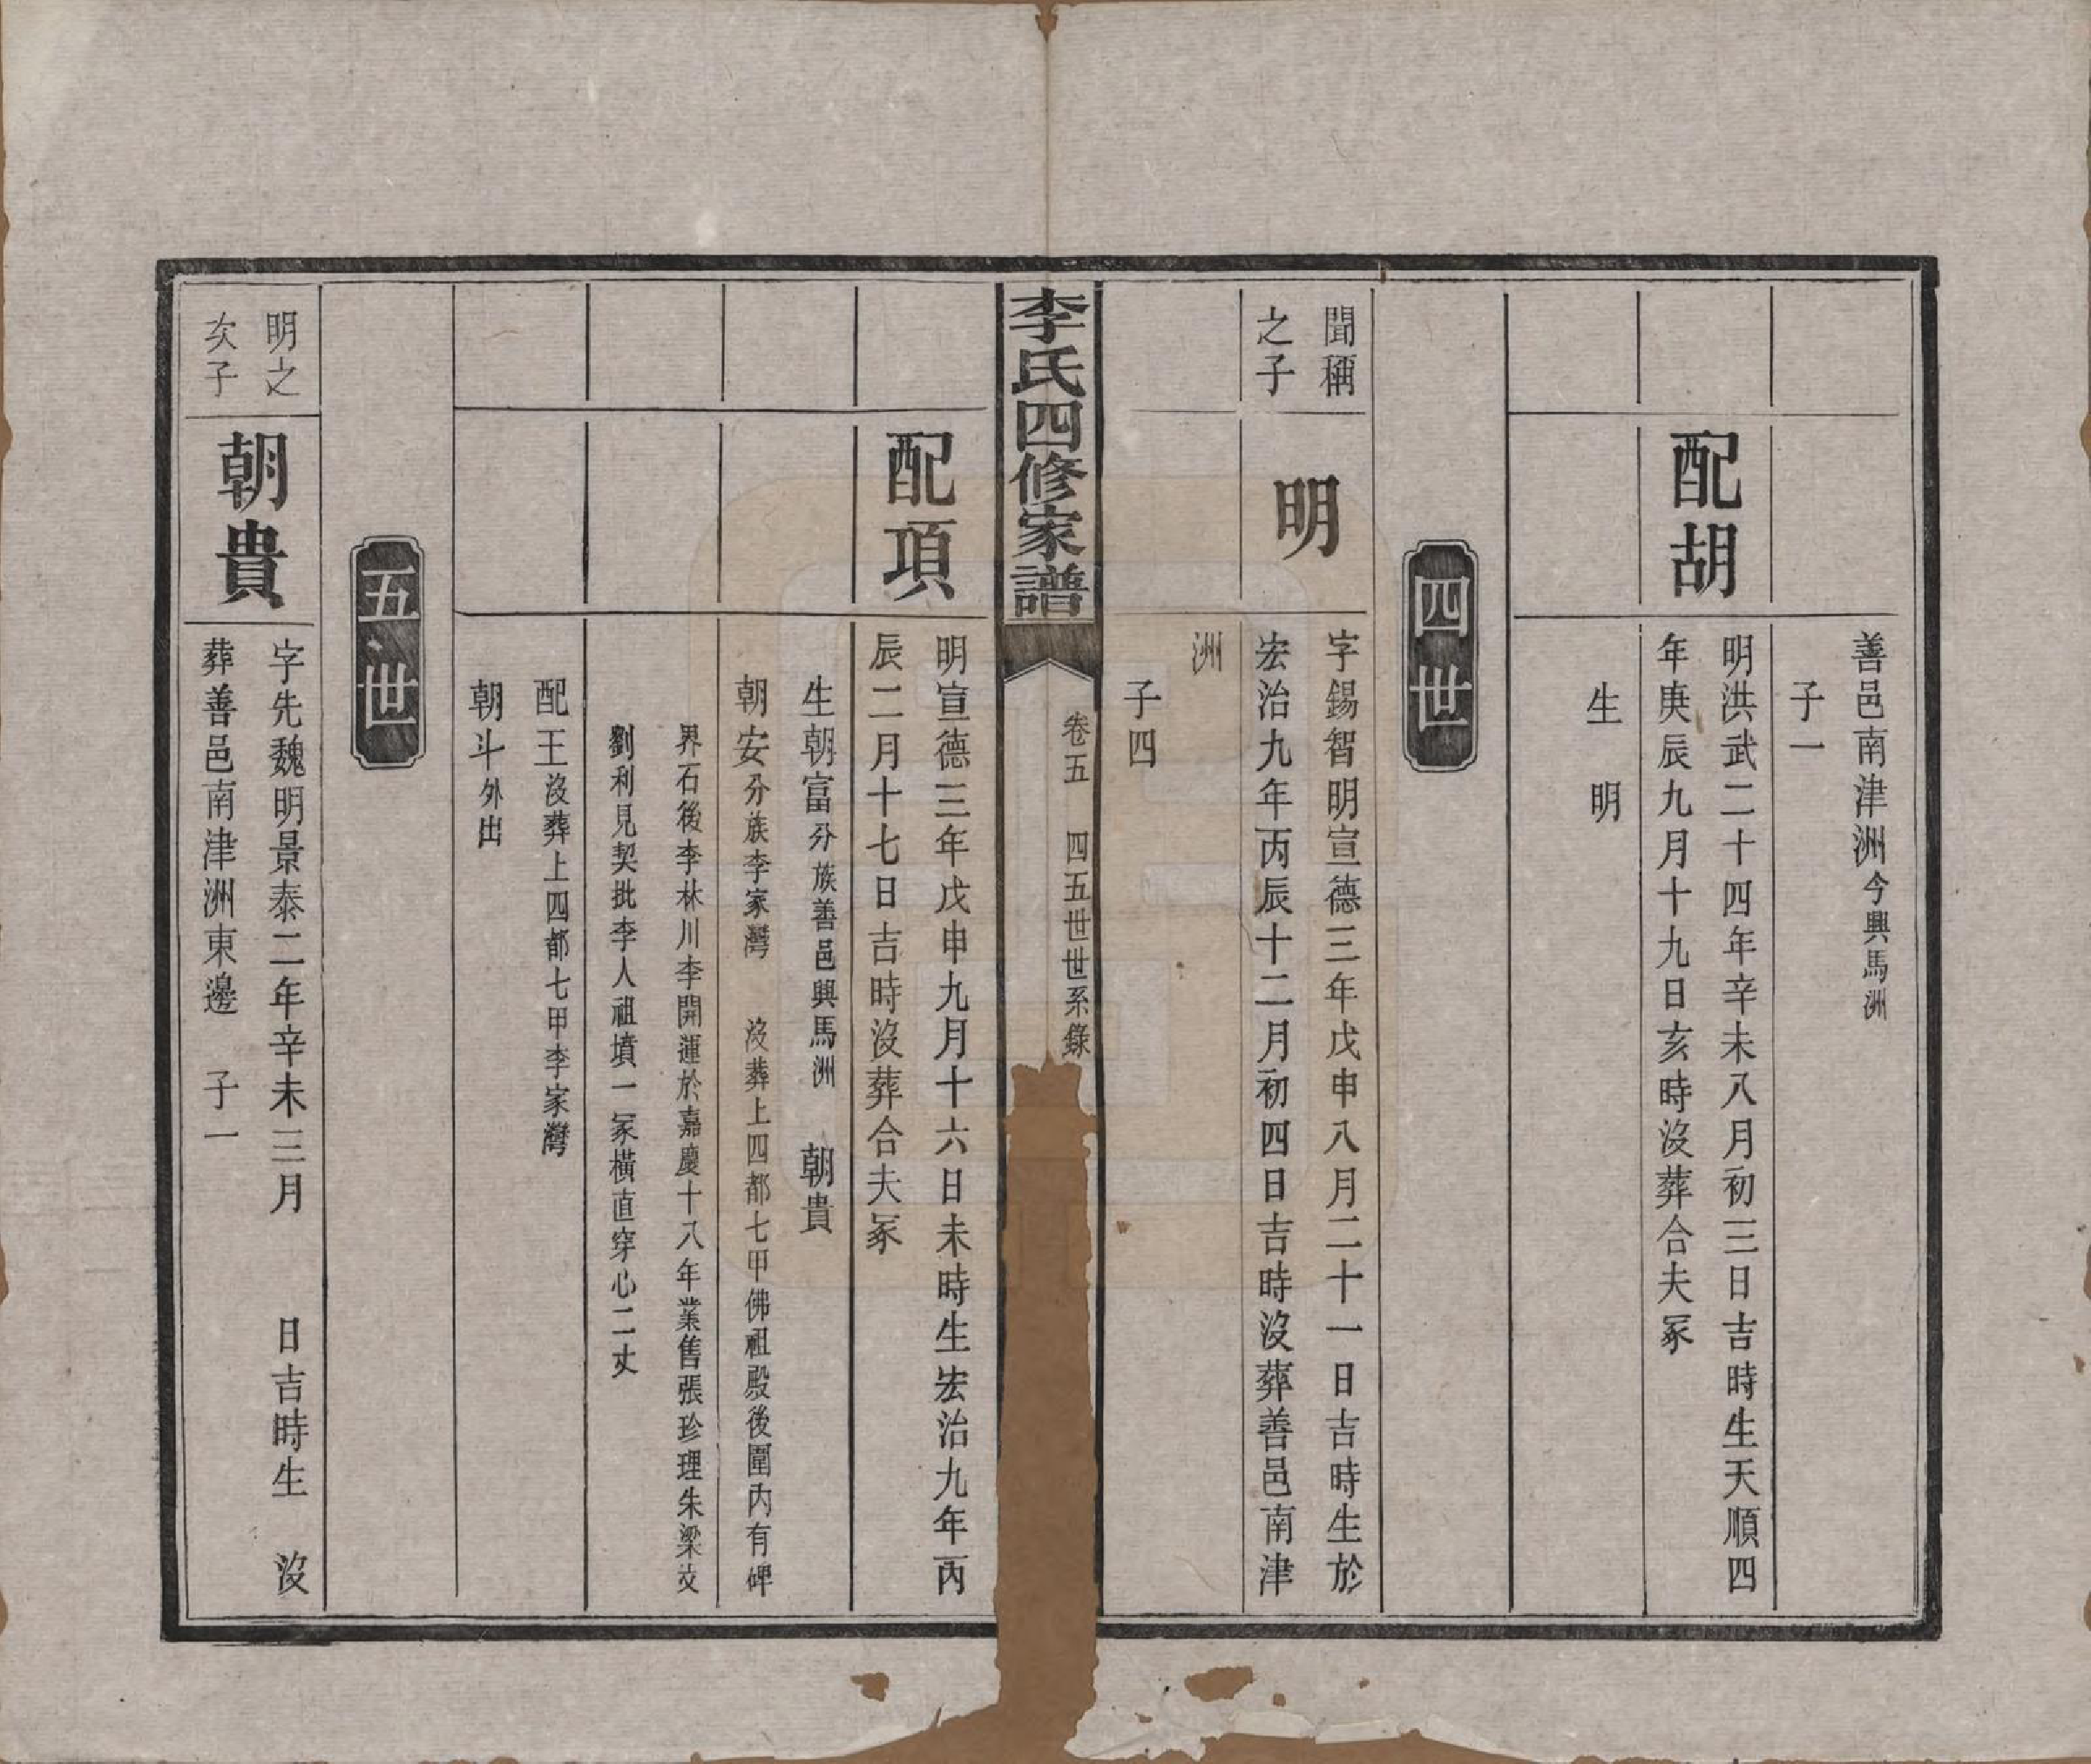 善邑南津洲今興馬洲
子一
配胡
明洪武二十四年辛未八月初三日吉時生天順四
年庚辰九月十九日亥時沒葬合夫冢
生 明
四世
聞稱
之子
明
字錫智明宣德三年戊申八月二十一日吉時生於
宏治九年丙辰十二月初四日吉時沒葬善邑南津
洲
子四
李氏四修家譜
卷五 四五世世系錄
配項
明宣德三年戊申九月十六日未時生宏治九年丙
辰二月十七日吉時沒葬合夫冢
生朝富分族善邑興馬洲 朝貴
朝安分族李家灣 沒葬上四都七甲佛祖殿後圍內有碑
界石後李林川李開運於嘉慶十八年業售張珍理朱梁文
劉利見契批李人祖墳一冢橫直穿心二丈
配王沒葬上四都七甲李家灣
朝斗外出
五世
明之
次子
朝貴
字先魏明景泰二年辛未三月 日吉時生 沒
葬善邑南津洲東邊 子一